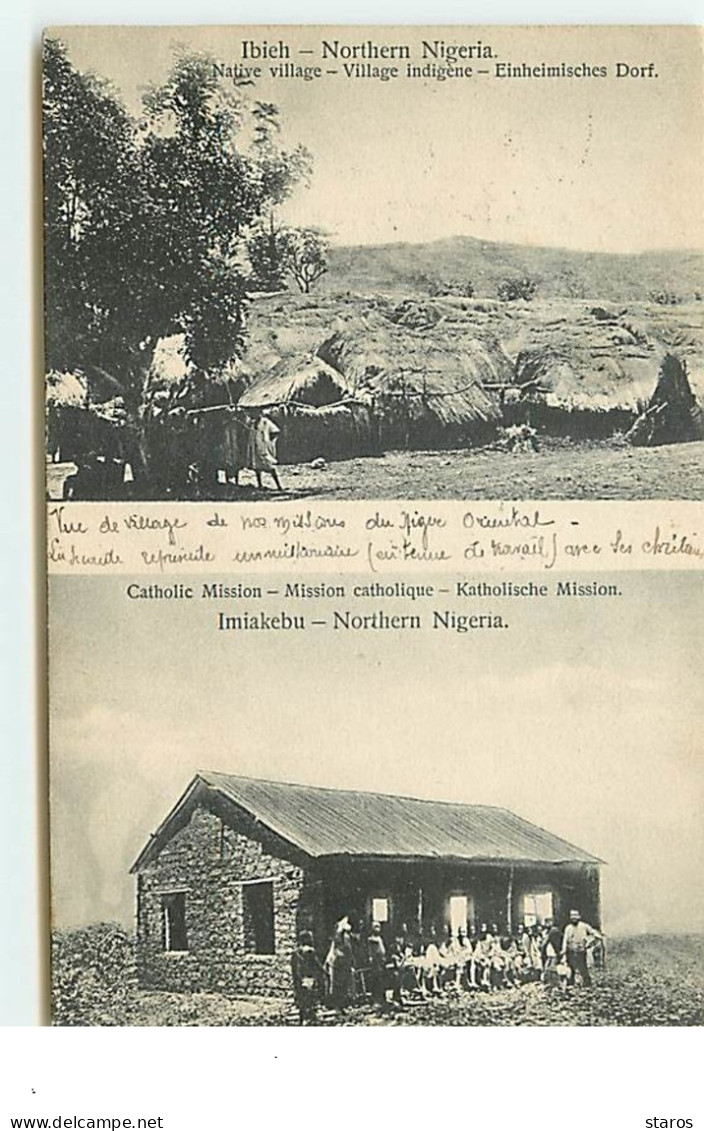 Ibieh – Northern Nigeria.
Native village – Village indigène – Einheimisches Dorf.
Vue de village de nos missions du Niger Oriental –
représente un missionnaire (en tenue de travail) avec ses chrétiens
Catholic Mission – Mission catholique – Katholische Mission.
Imiakebu – Northern Nigeria.
www.delcampe.net
staros